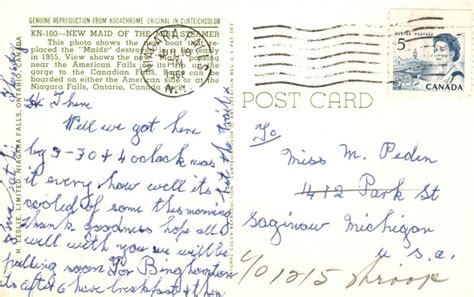 GENUINE REPRODUCTION FROM KODACHROME ORIGINAL IN CURTEICHCOLOR
KN-100—NEW MAID OF THE MIST STEAMER
This photo shows the new boat that replaced the "Maids" destroyed by fire early
in 1955. View shows the new "Maid" passing
near the American Falls on its
gorge to the Canadian Falls. Boat can be
boarded on either the American side or at the
Niagara Falls, Ontario, Canada dock.
H. LESLIE, LIMITED, NIAGARA FALLS, ONTARIO, CANADA
NIAGARA FALLS
JUL 19
PM
N.Y.
5
CANADA
POST CARD
Hi There
Well we got here
by 3-30 & 4 o'clock was
it every how well its
cooled of some this morning
thank goodness hope all
well with you we will be
pulling room for Binghampton
its after 6 have breakfast & then
To
Miss M. Peden
412 Park St
Saginaw Michigan
U.S.A.
C/O 1215 Throop